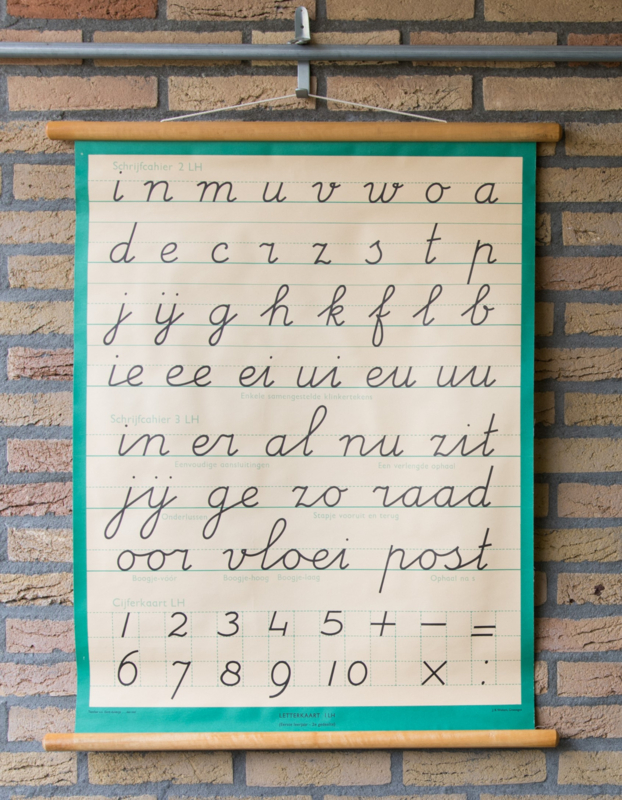 Schrijfcahier 2 LH
i n m u v w o a
d e c r z s t p
j ij g h k f l b
ie ee ei ui eu uu
Enkele samengestelde klinkertekens
Schrijfcahier 3 LH
in er al nu zit
Eenvoudige aansluitingen Een verlengde ophaal
jij ge zo raad
Onderlussen Stapje vooruit en terug
oor vloei post
Boogje-róór Boogje-hoog Boogje-laag Ophaal na s
Cijferkaart LH
1 2 3 4 5 + − =
6 7 8 9 10 × :
LETTERKAART LH